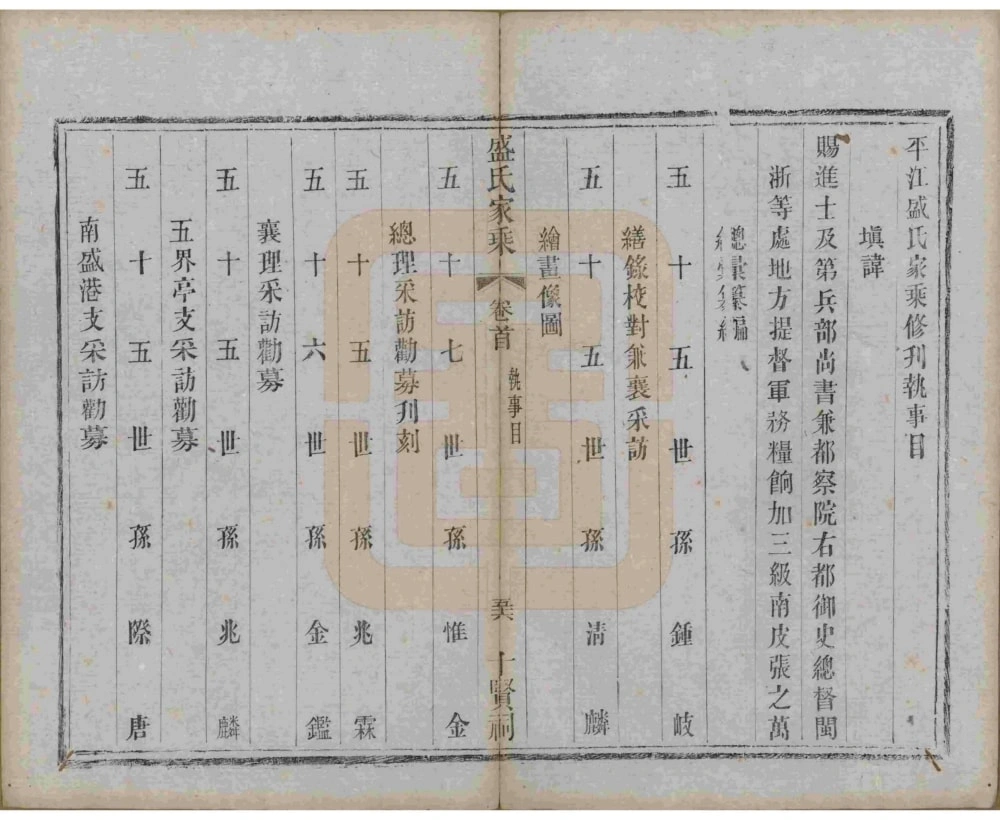 平江盛氏家乘修刋執事目
塡諱
賜進士及第兵部尚書兼都察院右都御史總督閩
浙等處地方提督軍務糧餉加三級南皮張之萬
總彙纂編
五十五世孫鍾岐
繕錄校對兼襄采訪
五十五世孫清麟
繪畫像圖
五十七世孫惟金
盛氏家乘 卷首 執事目 十賢祠
總理采訪勸募刋刻
五十五世孫兆霖
五十六世孫金鑑
襄理采訪勸募
五十五世孫兆麟
五界亭支采訪勸募
五十五世孫際唐
南盛港支采訪勸募